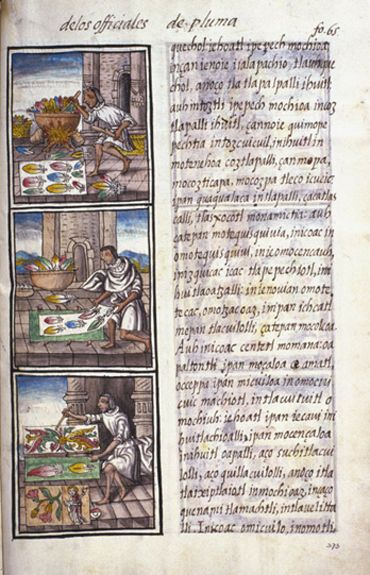 delos officiales de pluma
fo. 65.
quechol, ie hoatl ipepech mochioa
incan ienoie itlalapachio, tlauhque
chol, anoço tla tlapalpalli ihuitl
auh in toztli ipepech mochioa in coz
tlapalli ihuitl, cannoie quimope
pechtia in tozcuicuil, in ihuitl in
motenehoa coztlapalli, can mopa,
mocozticapa, mocozpa tleco icucic:
ipan quaqualaca in tlapalli, çacatlas
calli, tlalxocotl monamictia: auh
çatepan motequisquivia, in icoac in
omotequisquiui, in ie omocencauh,
in izquicac icac tlapepechiotl, in i
huitlaoatzalli: in ie nouian omote
tecac, omotzacoaz, in ipan ichcatl
mepan tlacuilolli, çatepan mocoleoa
Auh in icoac centetl momana: oa
paltontli ipan moçaloa amatl,
occeppa ipan micuiloa in omocui
cuic machiotl, in tlacuitl o
mochiuh: ie hoatl ipan iecaui in i
huitlachioalli, ipan mocencaloa
in ihuitl oapalli, aço suchitlacui
lolli, aço quillacuilolli, anoço itla
tlaixiptlaiotl in mochioaz, in aço
quenami tlamachtli, in tlauelitta
lli. In icoac omicuilo, in omotla